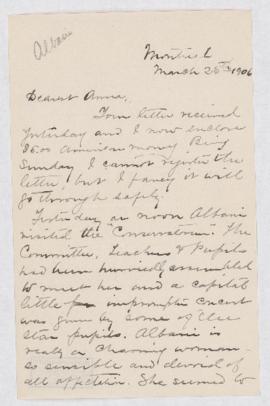 Albani
Montreal
March 25th 1906
Dearest Anna,
Your letter received
yesterday and I now enclose
American money Being
Sunday I cannot register the
letter, but I fancy it will
go through safely.
Yesterday noon Albani
visited the "Conservatorium". The
Committee, Teachers & Pupils
had been hurriedly assembled
to meet her and a capital
little impromptu concert
was given by some of the
star pupils. Albani is
really a charming woman -
so sensible and devoid of
all affectation. She seemed to